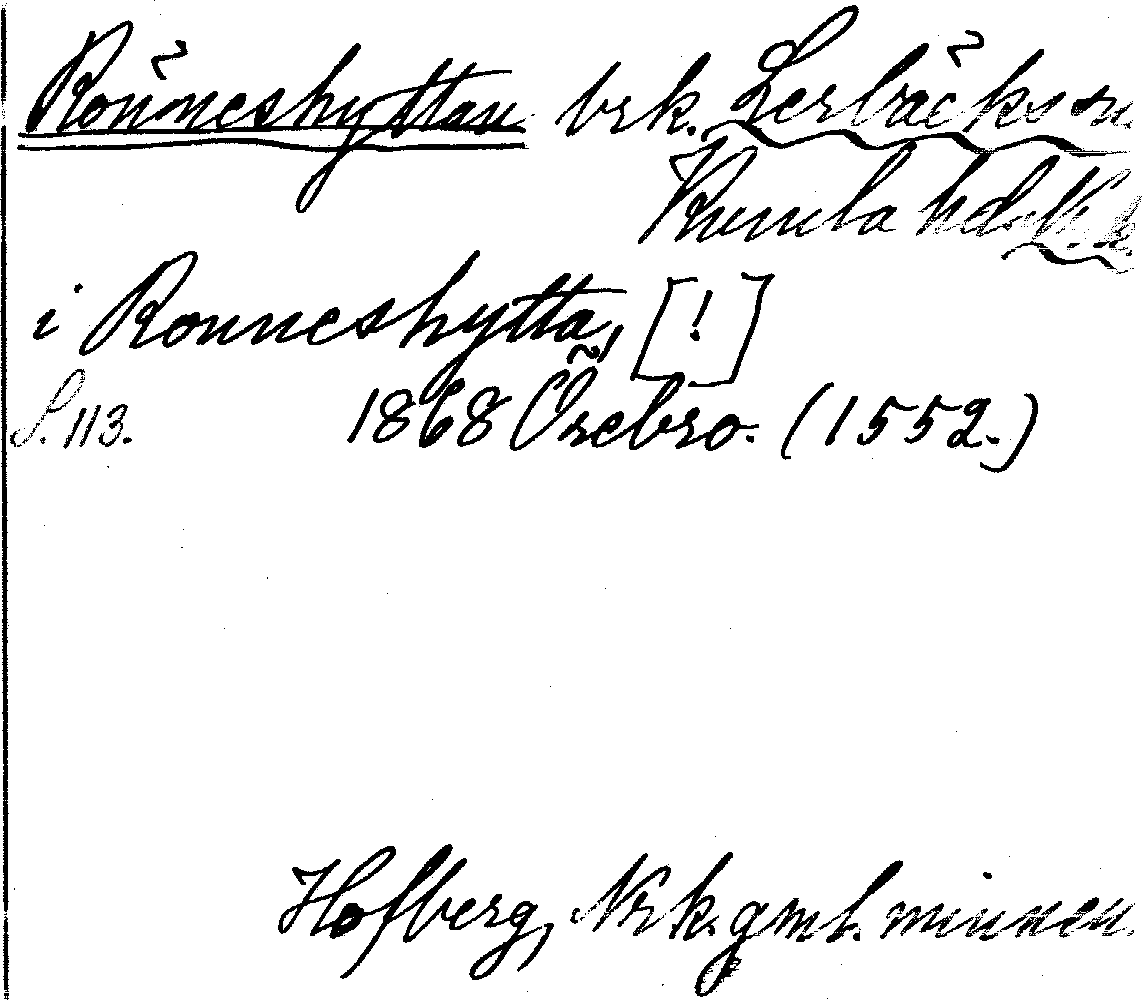 Rönneshyttan brk. Lerbäcks sn.
Kumla hd.
i Ronneshytta, [!]
S. 113. 1868 Örebro. (1552.)
Hofberg, Nrk. gml. minnen.